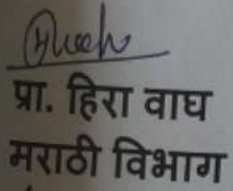 प्रा. हिरा वाघ
मराठी विभाग